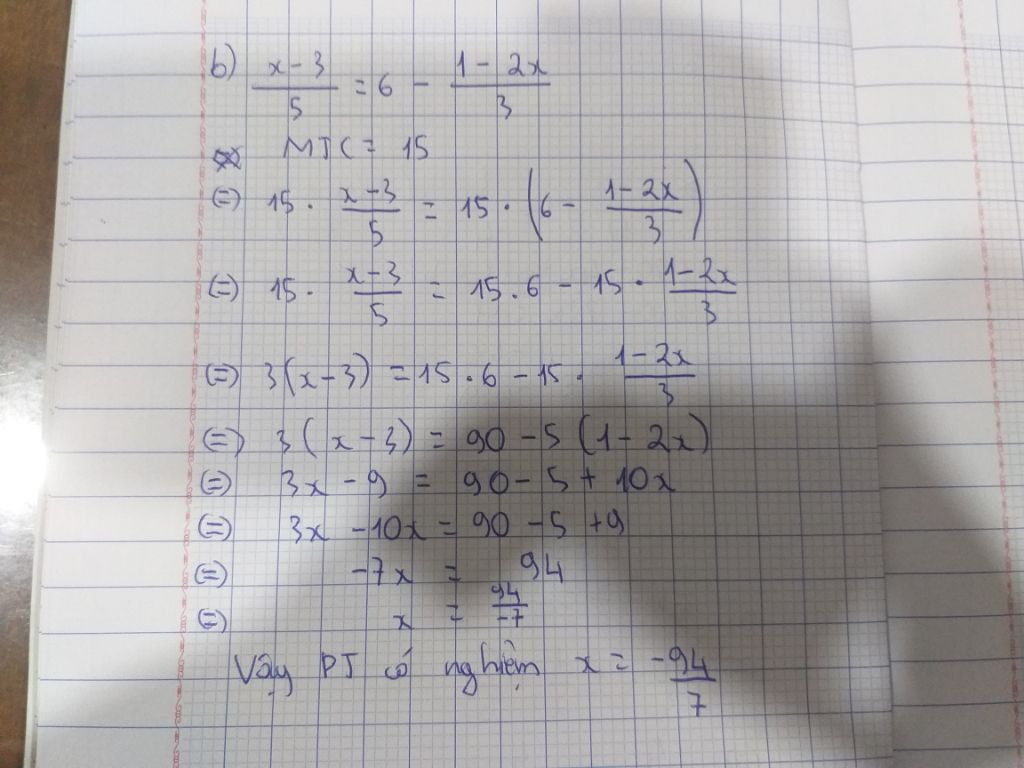 b) (x-3)/5 = 6 - (1-2x)/3
MTC = 15
(=) 15 · (x-3)/5 = 15 · (6 - (1-2x)/3)
(=) 15 · (x-3)/5 = 15 · 6 - 15 · (1-2x)/3
(=) 3(x-3) = 15 · 6 - 15 · (1-2x)/3
(=) 3(x-3) = 90 - 5(1-2x)
(=) 3x - 9 = 90 - 5 + 10x
(=) 3x - 10x = 90 - 5 + 9
(=) -7x = 94
(=) x = 94/-7
Vậy PT có nghiệm x = -94/7